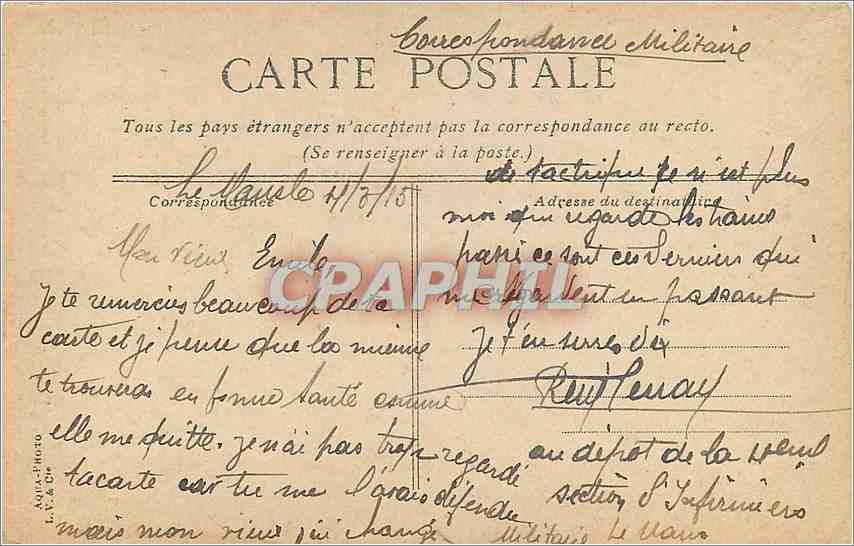 Correspondance Militaire
CARTE POSTALE
Tous les pays étrangers n'acceptent pas la correspondance au recto.
(Se renseigner à la poste.)
Correspondance
Le Mans le 4/3/15
Mon vieux Emile,
Je te remercies beaucoup de ta
carte et je pense que la mienne
te trouveras en bonne santé comme
elle me quitte. je n'ai pas trop regardé
ta carte car tu me l'avais défendu
mais mon vieux j'ai changé
Adresse du destinataire
de tactique ce n'est plus
moi qui regarde les trains
passé ce sont ces derniers qui
me regardent en passant
Je t'en serres dix
René
au dépot de la
section d'Infirmiers
Militaire Le Mans
AQUA-PHOTO
L. V. & Cie
CPARAMA